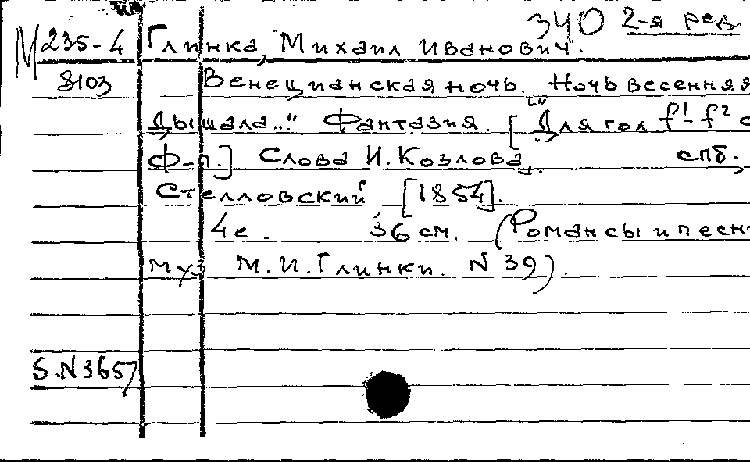 340 2-я ред.
М 235-4 Глинка, Михаил Иванович.
8103 Венецианская ночь. Ночь весенняя
дышала.." Фантазия. [Для гол f¹-f² с
ф-п.] Слова И. Козлова. спб.,
Стелловский [1854].
4с. 36 см. (Романсы и песн
муз М.И.Глинки. N 39).
S.N3657